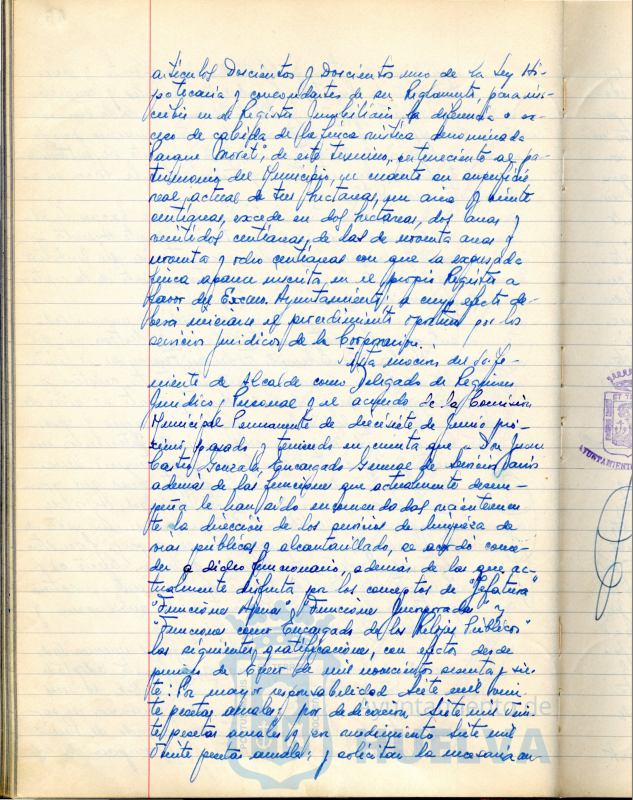 artículos Doscientos y Doscientos uno de la Ley Hi-
potecaria y concordantes de su Reglamento, para ins-
cribir en el Registro Inmobiliario, la diferencia o ex-
ceso de cabida de la finca rústica denominada
"Parque Moret", de este término, perteneciente al pa-
trimonio del Municipio, en cuanto su superficie
real, actual de tres hectáreas, un área y veinte
centiáreas, excede en dos hectáreas, dos áreas y
veintidós centiáreas, de las de noventa áreas y
noventa y ocho centiáreas con que la expresada
finca aparece inscrita, en el propio Registro a
favor del Excmo. Ayuntamiento, a cuyo efecto de-
berá iniciarse el procedimiento oportuno por los
servicios Jurídicos de la Corporación.
Vista moción del Te-
niente de Alcalde como Delegado de Régimen
Jurídico y Personal y el acuerdo de la Comisión
Municipal Permanente de diecisiete de Junio pró-
ximo pasado y teniendo en cuenta que Don Juan
Castro González, Encargado General de Servicios Varios
además de las funciones que actualmente desem-
peña le han sido encomendadas
la dirección de los servicios de limpieza de
vías públicas y alcantarillado, se acordó conce-
der a dicho funcionario, además de las que ac-
tualmente disfruta por los conceptos de "Jefatura"
"Funciones Ajenas" y "Funciones Incorporadas" y
"Funciones como Encargado de los Relojes Públicos"
las siguientes gratificaciones, con efectos desde
primero de Enero de mil novecientos sesenta y sie-
te: Por mayor responsabilidad siete mil vein-
te pesetas anuales; por dedicación, siete mil vein-
te pesetas anuales y por rendimiento siete mil
veinte pesetas anuales; y solicitar la necesaria au-
AYUNTAMIENTO
Ayuntamiento de
HUELVA